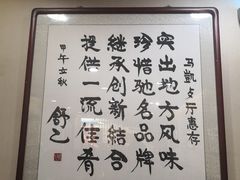 马凯餐厅惠存
突出地方风味
珍惜驰名品牌
继承创新结合
提供一流佳肴
甲午立秋
舒乙